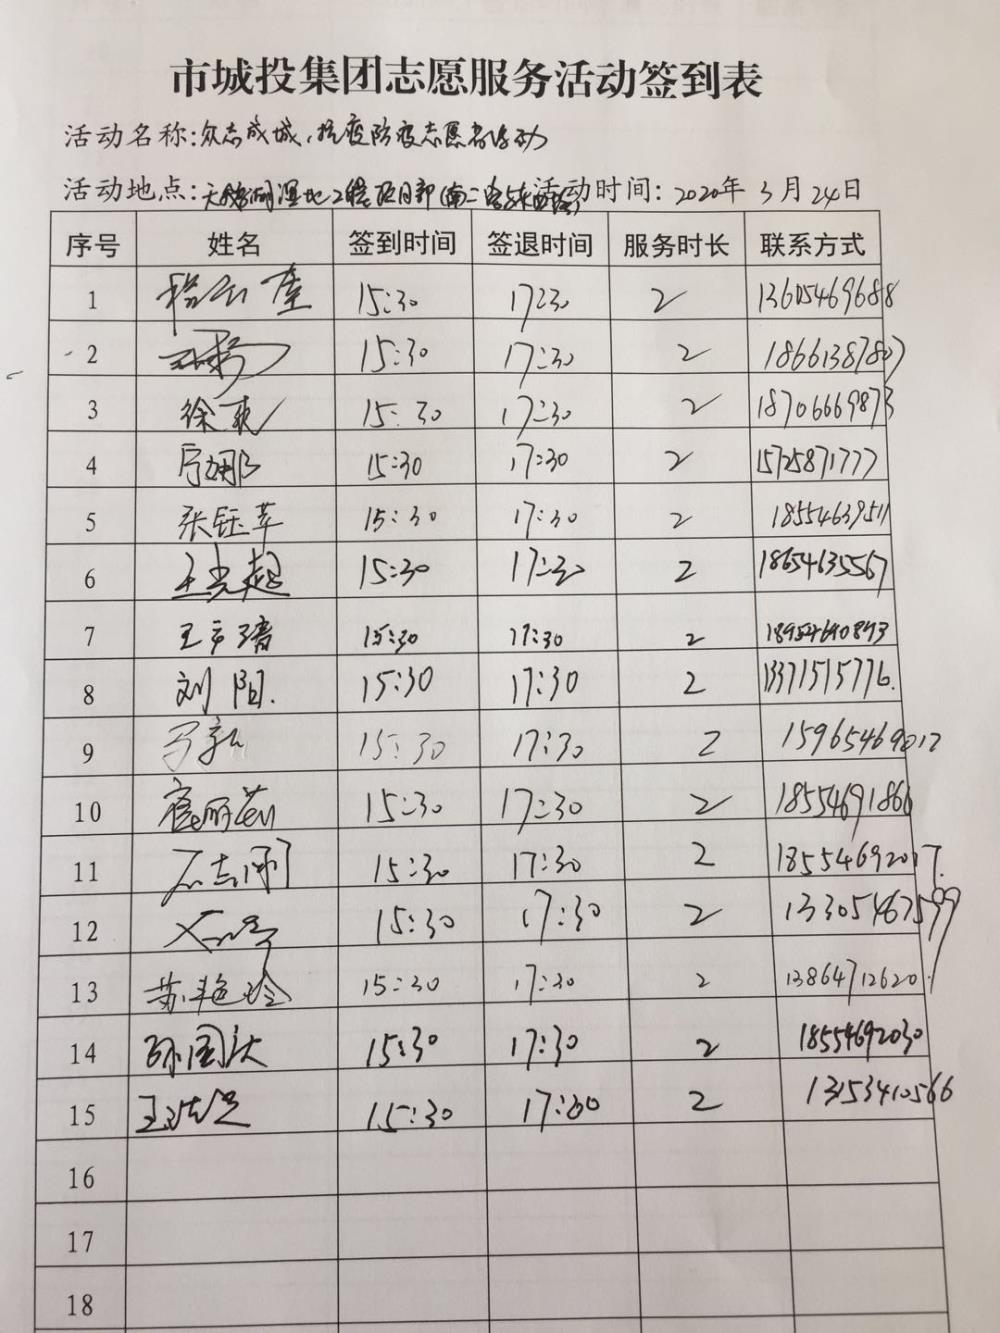 市城投集团志愿服务活动签到表
活动名称:众志成城,抗疫防疫志愿者活动
活动地点: 湿地工程项目部(南二路 活动时间: 2020年 3月24日
序号 姓名 签到时间 签退时间 服务时长 联系方式
1 15:30 17:30 2 13605469688
2 15:30 17:30 2 18661387807
3 徐爽 15:30 17:30 2 18706669873
4 15:30 17:30 2 15725871777
5 张钰苹 15:30 17:30 2 18554639511
6 王光超 15:30 17:30 2 18654635567
7 15:30 17:30 2 18954690893
8 刘阳. 15:30 17:30 2 13371515776.
9 15:30 17:30 2 15965469012
10 15:30 17:30 2 18554691866
11 15:30 17:30 2 18554692017.
12 15:30 17:30 2 13305467599
13 苏艳玲 15:30 17:30 2 13864712620
14 孙国庆 15:30 17:30 2 18554692030
15 15:30 2 13153410566
16
17
18